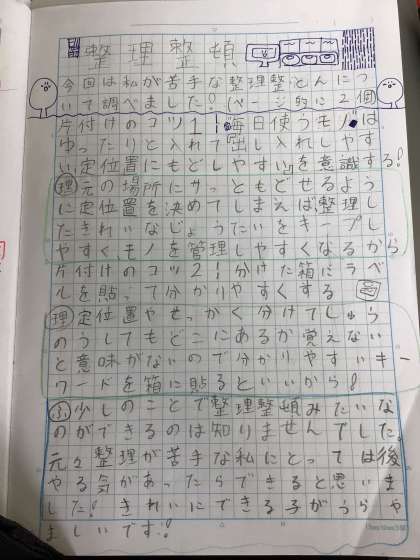 整理整頓
今回は私が苦手な整理整とんにつ
いて調べました!(ページ的に2個
片付けのコツ1!毎日使うモノは
ゆったりと入れて出し入れしやす
い定位置にもどしやすい)を意識する!
理元の場所にサッともどせるよう
に定位置を決めてしまえば整理し
たきれいなじょうたいをキープし
やすく、モノを管理しやすくなるから
片付けのコツ2!分けた箱にラベ
ルを貼って分かりやすくする
理定位置やせっかく分けてしゅう
のうしてもどこにあるか覚えない
と意味がないので分かりやすいキー
ワードを箱に貼るといいから!
ふ少しのことで整理整頓みたいな
のができるのは知りませんでした。
元々整理が苦手な私にとっては後
やる気があったらできると思いま
した!きれいにできる子がうらや
ましいです!